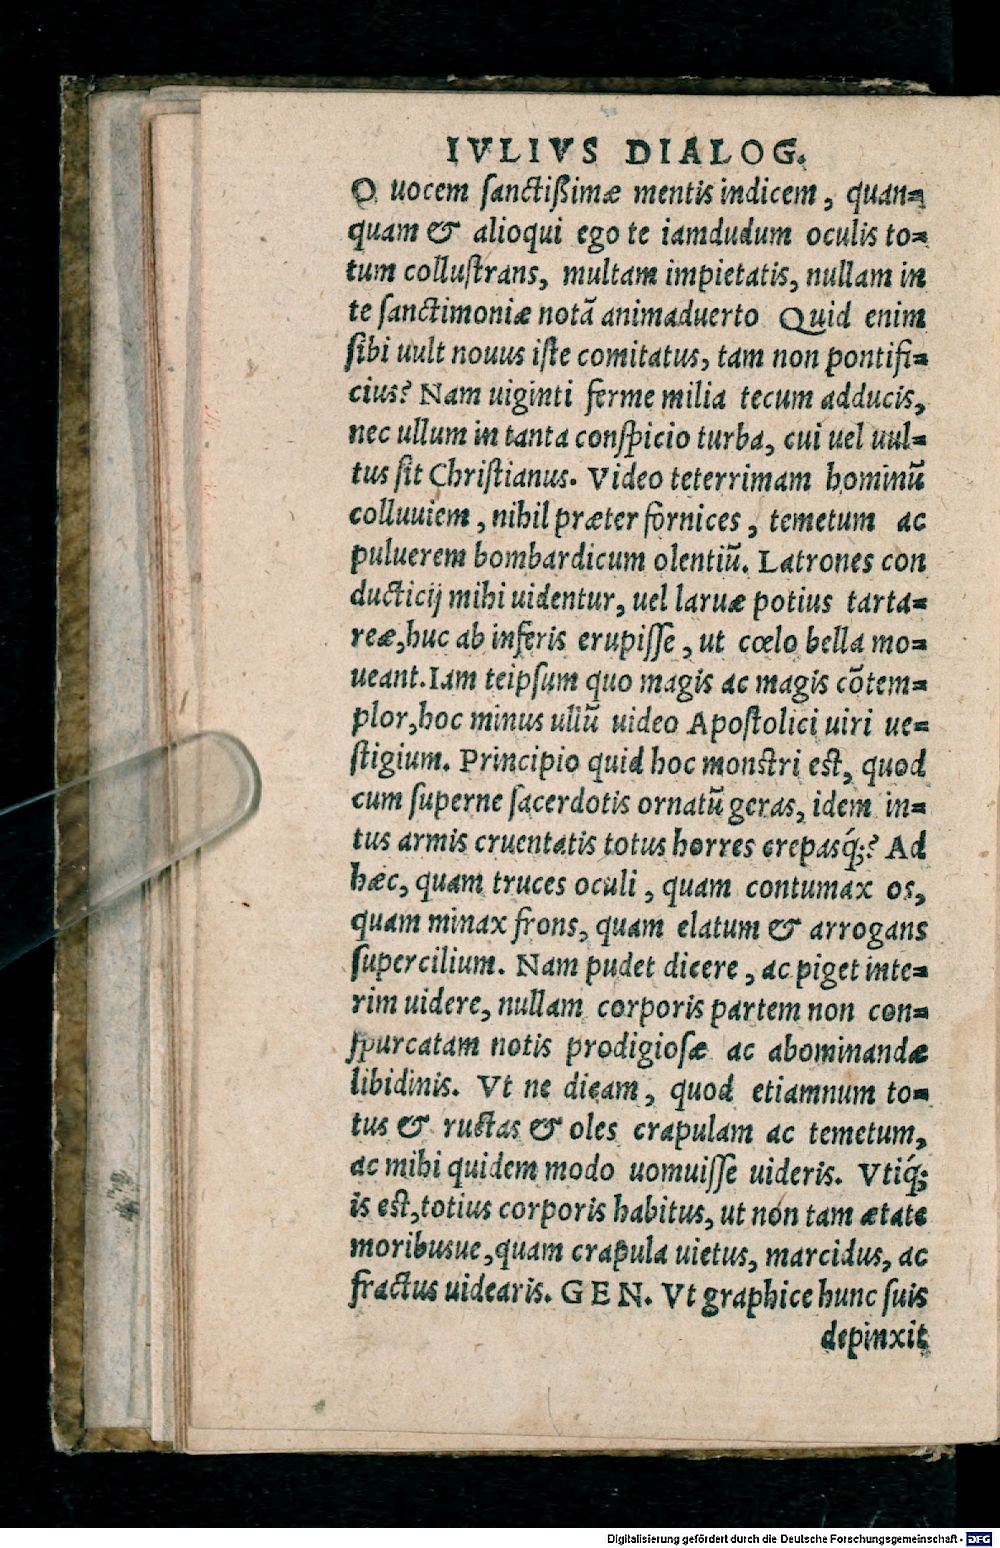 IVLIVS DIALOG.
O uocem ſanctiſsimæ mentis indicem, quan=
quam & alioqui ego te iamdudum oculis to=
tum colluſtrans, multam impietatis, nullam in
te ſanctimoniæ notã animaduerto Quid enim
ſibi uult nouus iſte comitatus, tam non pontifi=
cius? Nam uiginti ferme milia tecum adducis,
nec ullum in tanta conſpicio turba, cui uel uul=
tus ſit Chriſtianus. Video teterrimam hominũ
colluuiem, nihil præter fornices, temetum ac
puluerem bombardicum olentiũ. Latrones con
ducticij mihi uidentur, uel laruæ potius tarta=
reæ, huc ab inferis erupiſſe, ut cœlo bella mo=
ueant. Iam teipſum quo magis ac magis cõtem=
plor, hoc minus ullũ uideo Apoſtolici uiri ue=
ſtigium. Principio quid hoc monſtri eſt, quod
cum ſuperne ſacerdotis ornatũ geras, idem in=
tus armis cruentatis totus horres crepasq́;? Ad
hæc, quam truces oculi, quam contumax os,
quam minax frons, quam elatum & arrogans
ſupercilium. Nam pudet dicere, ac piget inte=
rim uidere, nullam corporis partem non con=
ſpurcatam notis prodigioſæ ac abominandæ
libidinis. Vt ne dicam, quod etiamnum to=
tus & ructas & oles crapulam ac temetum,
ac mihi quidem modo uomuiſſe uideris. Vtiq́;
is eſt, totius corporis habitus, ut non tam ætate
moribusue, quam crapula uietus, marcidus, ac
fractus uidearis. GEN. Vt graphice hunc ſuis
depinxit
Digitalisierung gefördert durch die Deutsche Forschungsgemeinschaft - DFG